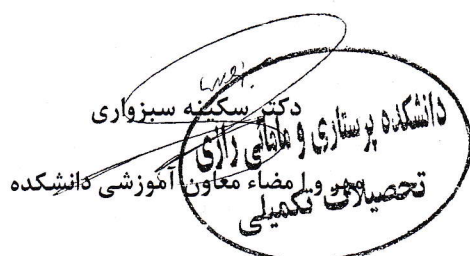 دکتر سکینه سبزواری
مهر و امضاء معاون آموزشی دانشکده
دانشکده پرستاری و مامائی رازی
تحصیلات تکمیلی